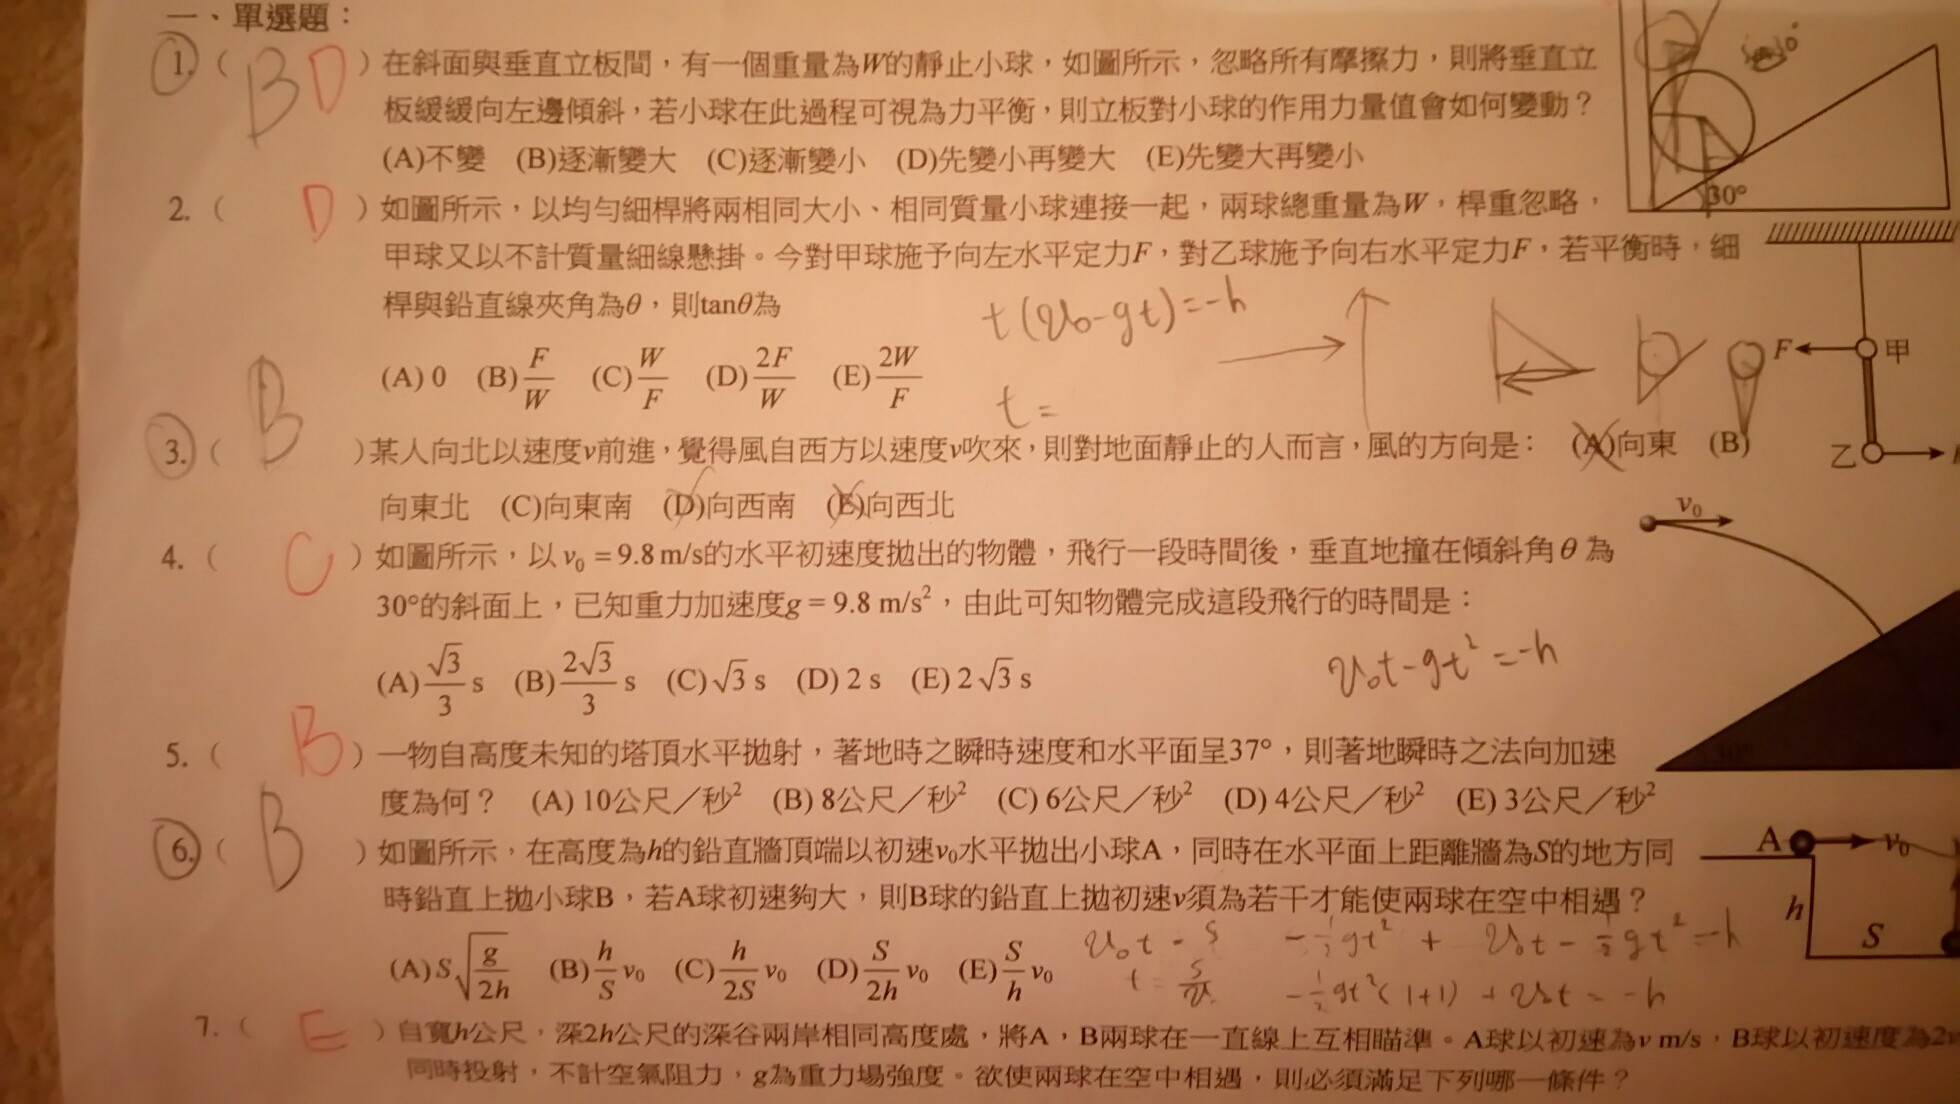 一、單選題：
1. ( B D ) 在斜面與垂直立板間，有一個重量為W的靜止小球，如圖所示，忽略所有摩擦力，則將垂直立
板緩緩向左邊傾斜，若小球在此過程可視為力平衡，則立板對小球的作用力量值會如何變動？
(A)不變 (B)逐漸變大 (C)逐漸變小 (D)先變小再變大 (E)先變大再變小
30°
2. ( D ) 如圖所示，以均勻細桿將兩相同大小、相同質量小球連接一起，兩球總重量為W，桿重忽略，
甲球又以不計質量細線懸掛。今對甲球施予向左水平定力F，對乙球施予向右水平定力F，若平衡時，細
桿與鉛直線夾角為θ，則tanθ為
t(v₀-gt)=-h
(A) 0 (B) F/W (C) W/F (D) 2F/W (E) 2W/F
t =
F 甲
乙
3. ( B ) 某人向北以速度v前進，覺得風自西方以速度v吹來，則對地面靜止的人而言，風的方向是： (A)向東 (B)
向東北 (C)向東南 (D)向西南 (E)向西北
v₀
4. ( C ) 如圖所示，以 v₀ = 9.8 m/s的水平初速度拋出的物體，飛行一段時間後，垂直地撞在傾斜角 θ 為
30°的斜面上，已知重力加速度g = 9.8 m/s²，由此可知物體完成這段飛行的時間是：
(A) √3/3 s (B) 2√3/3 s (C) √3 s (D) 2 s (E) 2√3 s
v₀t-gt²=-h
30°
5. ( B ) 一物自高度未知的塔頂水平拋射，著地時之瞬時速度和水平面呈37°，則著地瞬時之法向加速
度為何？ (A) 10公尺／秒² (B) 8公尺／秒² (C) 6公尺／秒² (D) 4公尺／秒² (E) 3公尺／秒²
6. ( B ) 如圖所示，在高度為h的鉛直牆頂端以初速v₀水平拋出小球A，同時在水平面上距離牆為S的地方同
時鉛直上拋小球B，若A球初速夠大，則B球的鉛直上拋初速v須為若干才能使兩球在空中相遇？
A v₀
h
S
(A) S√(g/2h) (B) h/S v₀ (C) h/2S v₀ (D) S/2h v₀ (E) S/h v₀
v₀t = S
-½gt² + v₀t - ½gt² = -h
-½gt²(1+1) + v₀t = -h
7. ( E ) 自寬h公尺，深2h公尺的深谷兩岸相同高度處，將A，B兩球在一直線上互相瞄準。A球以初速為v m/s，B球以初速度為2v
同時投射，不計空氣阻力，g為重力場強度。欲使兩球在空中相遇，則必須滿足下列哪一條件？